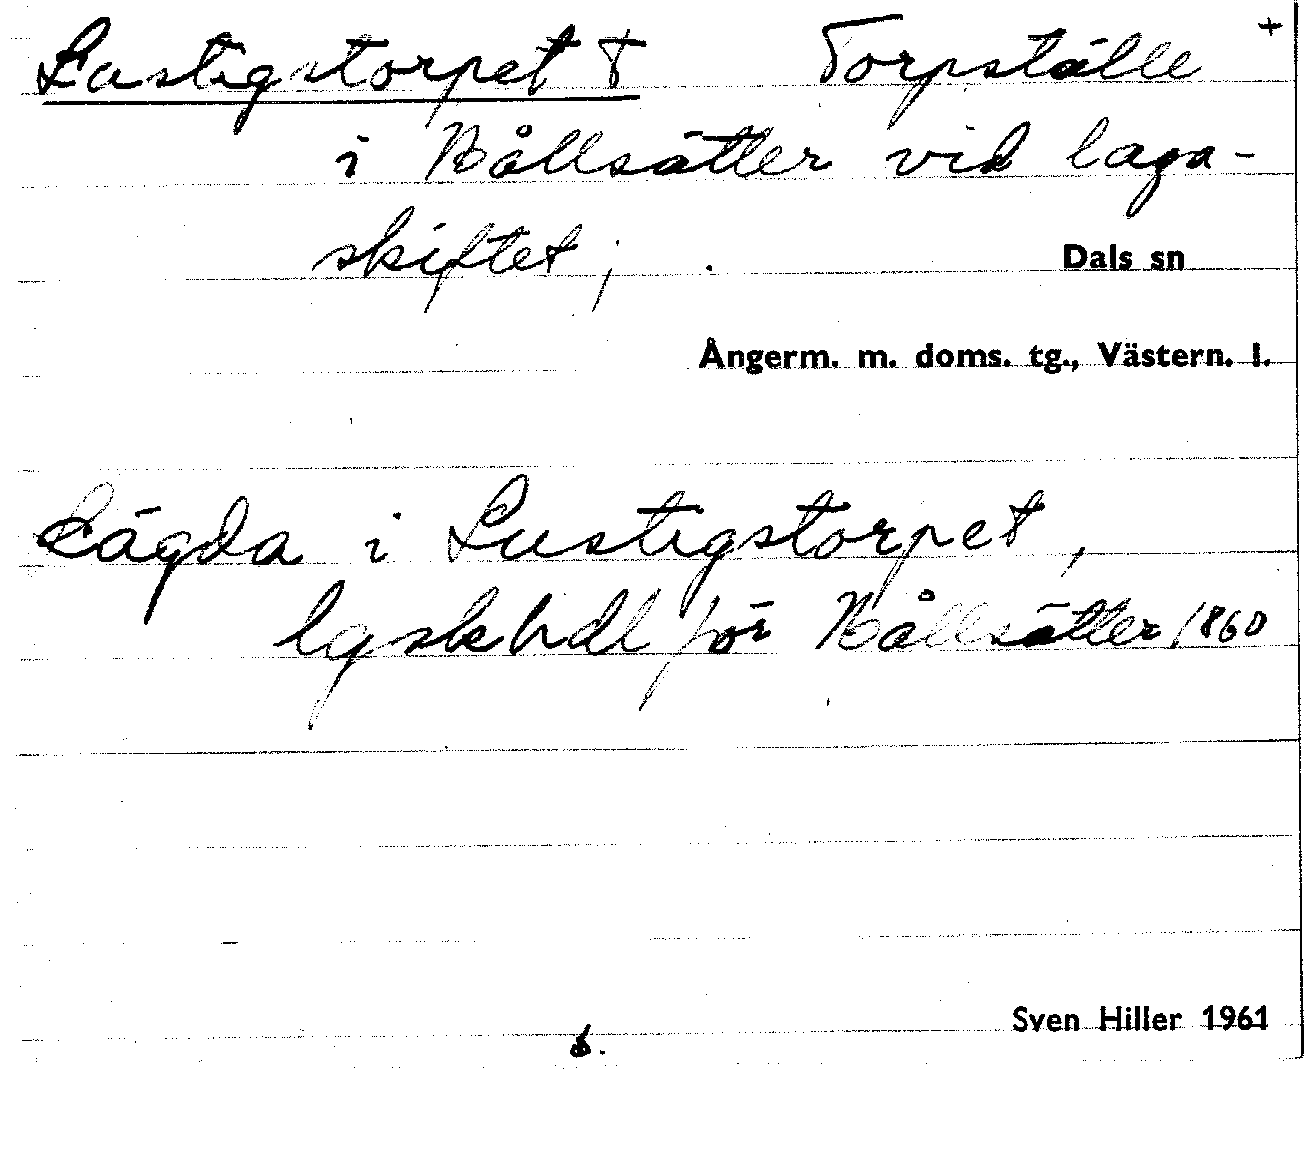 Lustigstorpet † Torpställe +
i Kållsätter vid laga-
skiftet, .
Dals sn
Ångerm. m. doms. tg., Västern. l.
Lägda i Lustigstorpet,
lgskhdl för Kållsätter 1860
Sven Hiller 1961